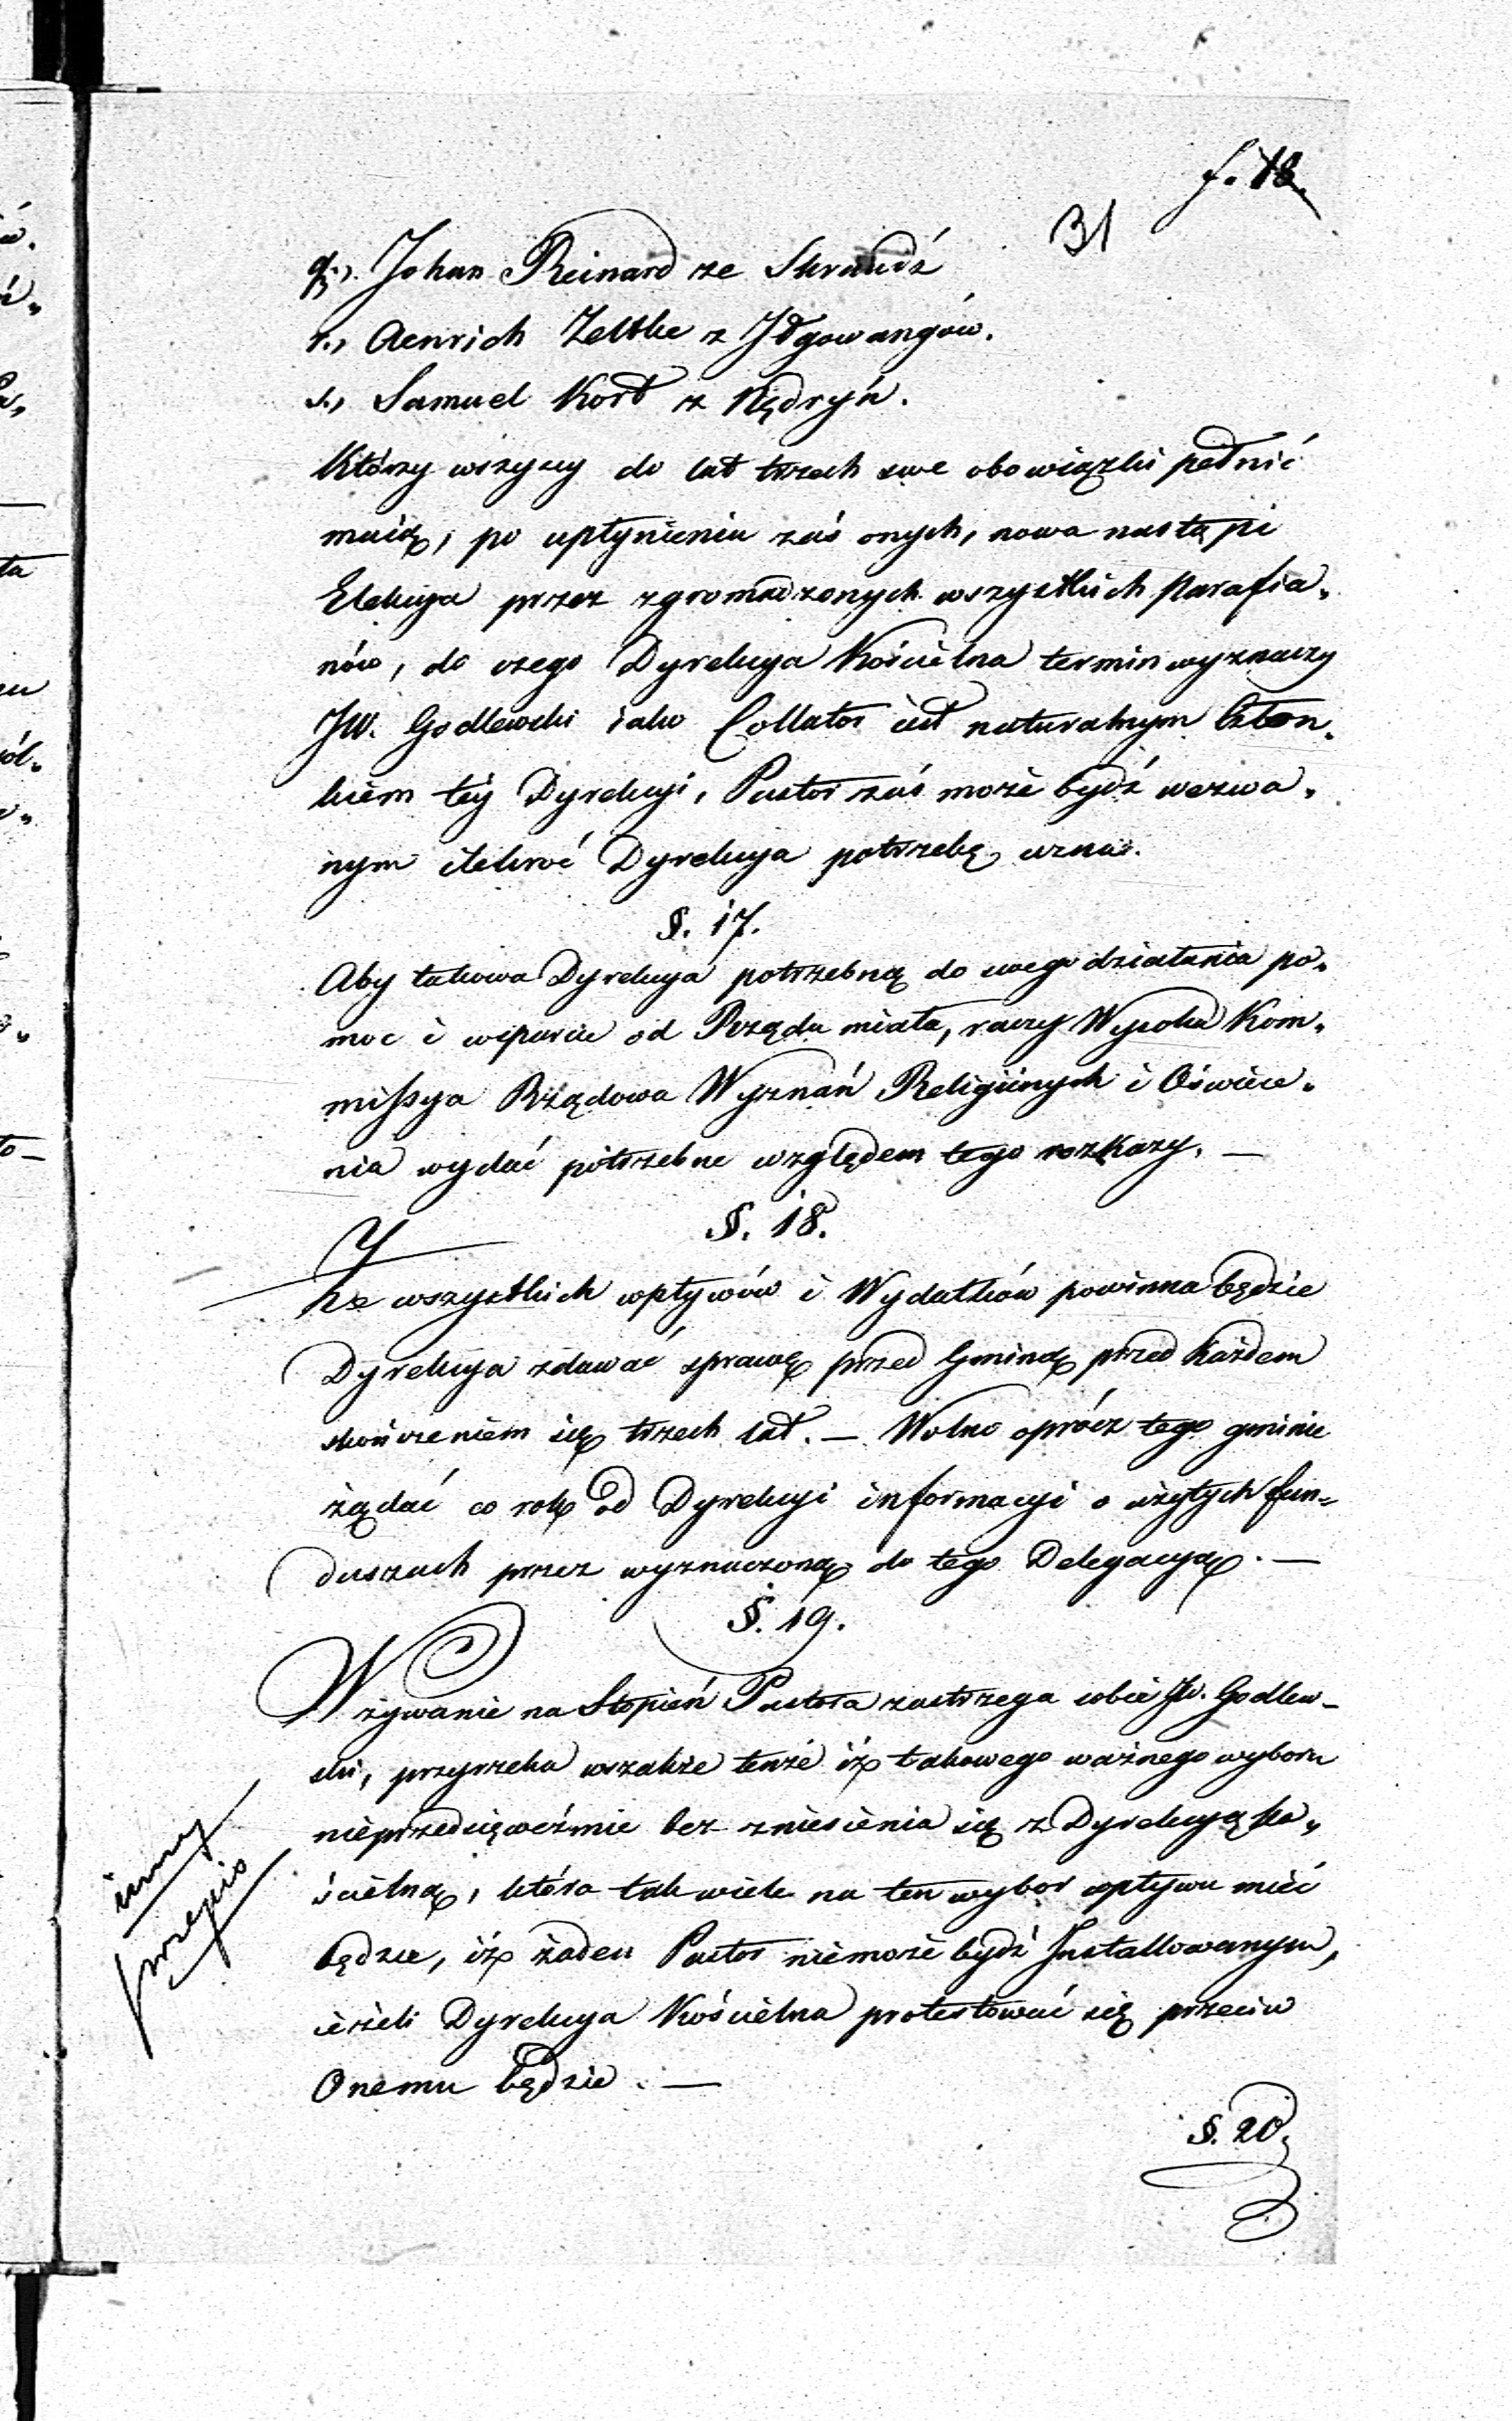 f. 18.
31
q., Johan Reinard ze Skraudź
r., Henrich Zeltke z Jłgowangów.
s., Samuel Kort z Kędryń.
Którzy wszyscy do lat trzech swe obowiązki pełnić
maią, po upłynieniu zaś onych, nowa nastąpi
Elekcya przez zgromadzonych wszystkich Parafia„
nów, do czego Dyrekcya Kościelna termin wyznaczy
JW. Godlewski iako Collator iest naturalnym Człon„
kiem téy Dyrekcyi, Pastor zaś może bydź wezwa„
nym ilekroć Dyrekcya potrzebę uzna.
§. 17.
Aby takowa Dyrekcya potrzebną do swego działania po„
moc i wsparcie od Rządu miała, raczy Wysoka Kom„
missya Rządowa Wyznań Religiinych i Oświece„
nia wydać potrzebne względem tego rozkazy. —
§. 18.
Ze wszystkich wpływów i Wydatków powinna będzie
Dyrekcya zdawać sprawę przed Gminą przed każdem
skończeniem się trzech lat. — Wolno oprócz tego gminie
żądać co rok od Dyrekcyi informacyi o użytych fun„
duszach przez wyznaczoną do tego Delegacyą. —
§. 19.
Wzywanie na Stopień Pastora zastrzega sobie JW. Godlew—
ski, przyrzeka wszakże tenże iż takowego ważnego wyboru
nieprzedsięweźmie bez zniesienia się z Dyrekcyą Ko„
ścielną, która tak wiele na ten wybor wpływu mieć
będzie, iż żaden Pastor niemoże bydź Installowanym,
ieżeli Dyrekcya Kościelna protestować się przeciw
Onemu będzie. —
inny
przepis
§. 20.